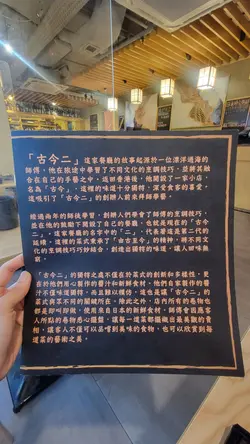 「古今二」這家餐廳的故事起源於一位漂洋過海的
師傅，他在旅途中學習了不同文化的烹調技巧，並將其融
合在自己的手藝之中。這日香港後，他開設了一家小店，
名為「古今」，這裡的味道十分獨特，深受食客的喜愛，
這吸引了「古今二」的創辦人前來拜師學藝。
經過兩年的師徒學習，創辦人們學會了師傅的烹調技巧，
並在他的鼓勵下開設了自己的餐廳，也就是現在的「古今
二」。這家餐廳的名字中的「二」，代表著這是第二代的
延續。這裡的菜式秉承了「由古至今」的精神，將不同文
化的烹調技巧巧妙結合，創造出獨特的味道，讓人回味無
窮。
「古今二」的獨特之處不僅在於菜式的創新和多樣性，更
在於他們用心製作的醬汁和新鮮食材。他們自家製作的醬
汁不僅味道獨特，而且難以模仿，這也是讓「古今二」的
菜式與眾不同的關鍵所在。除此之外，店內所有的卷物也
都是即叫即做，使用來自日本的新鮮食材，師傅會因應客
人所點的卷物悉心擺盤，讓每一道菜都擺緻出最美觀的賣
相，讓客人不僅可以品嚐到美味的食物，也可以欣賞到每
道菜的藝術之美。